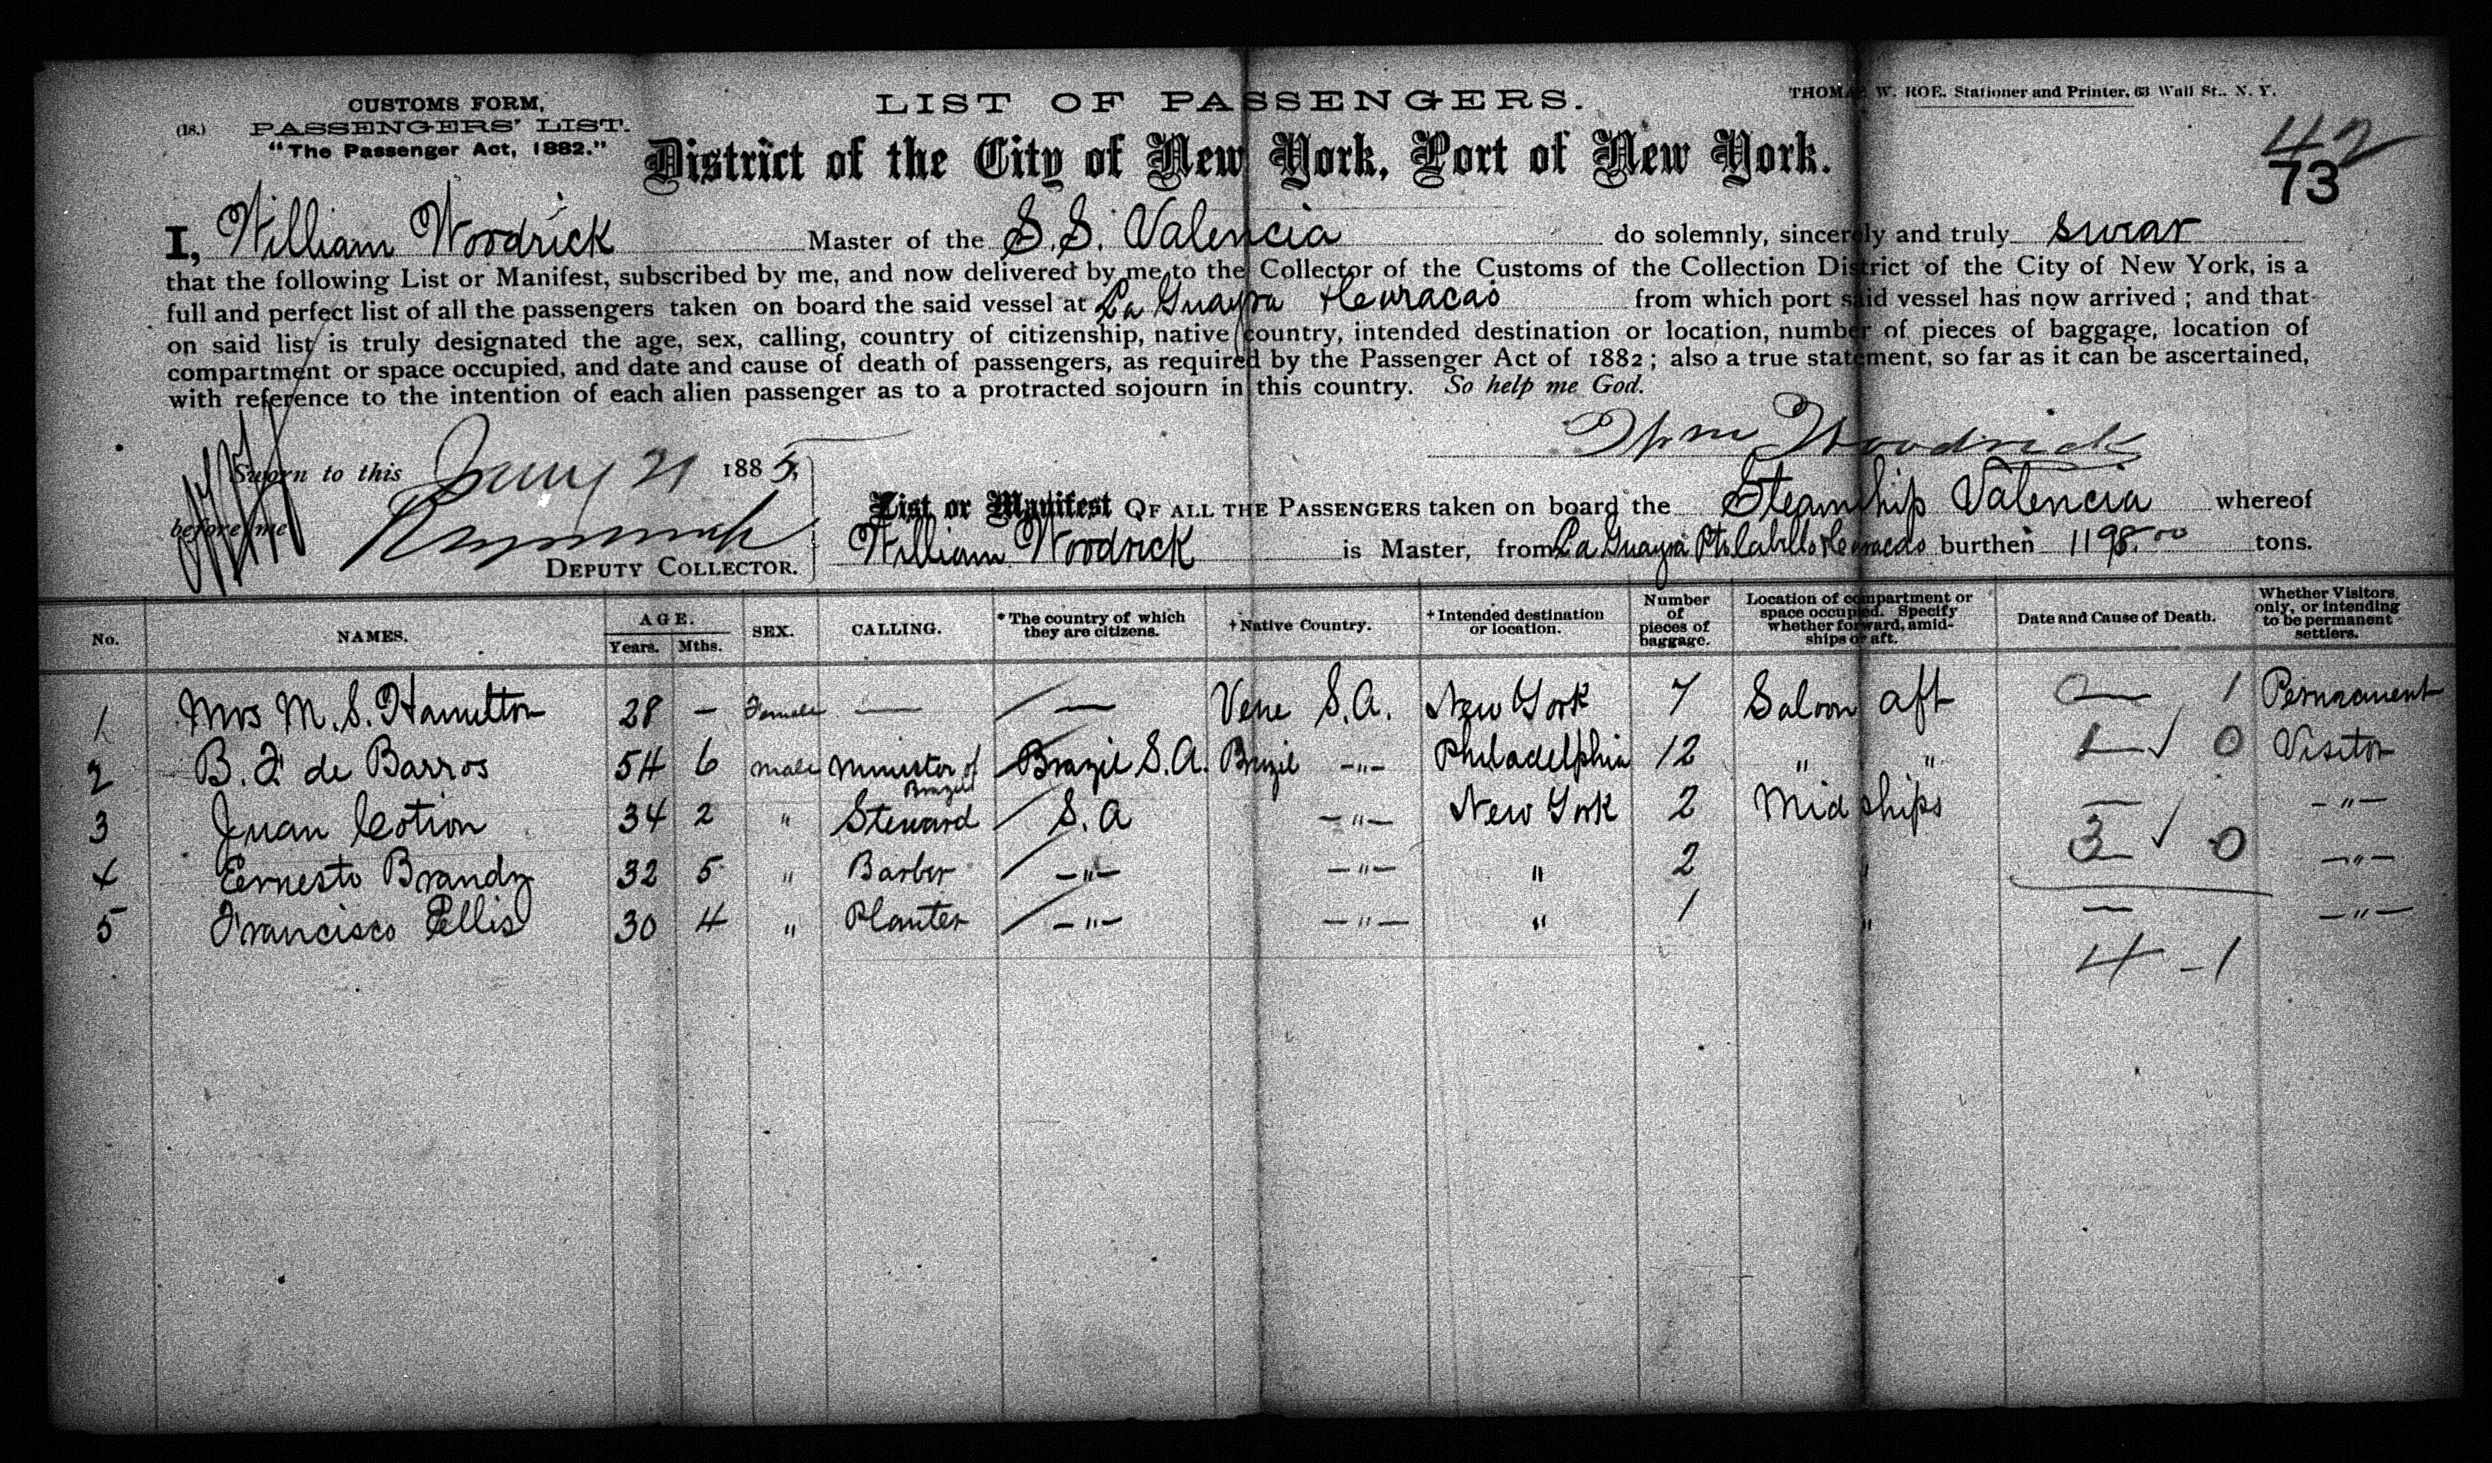 CUSTOMS FORM,
(18.) PASSENGERS' LIST.
"The Passenger Act, 1882."
LIST OF PASSENGERS.
THOMAS W. ROE. Stationer and Printer, 63 Wall St., N. Y.
42
73
District of the City of New York, Port of New York.
I, William Woodrick Master of the S.S. Valencia do solemnly, sincerely and truly swear
that the following List or Manifest, subscribed by me, and now delivered by me to the Collector of the Customs of the Collection District of the City of New York, is a
full and perfect list of all the passengers taken on board the said vessel at La Guayra + Curacao from which port said vessel has now arrived ; and that
on said list is truly designated the age, sex, calling, country of citizenship, native country, intended destination or location, number of pieces of baggage, location of
compartment or space occupied, and date and cause of death of passengers, as required by the Passenger Act of 1882 ; also a true statement, so far as it can be ascertained,
with reference to the intention of each alien passenger as to a protracted sojourn in this country. So help me God.
Wm Woodrick
Sworn to this Jany 21 1885.
before me
DEPUTY COLLECTOR.
List or Manifest OF ALL THE PASSENGERS taken on board the Steamship Valencia whereof
William Woodrick is Master, from La Guayra Pto Cabello + Curacao burthen 1198.00 tons.
No. NAMES. AGE. Years. Mths. SEX. CALLING. * The country of which they are citizens. † Native Country. † Intended destination or location. Number of pieces of baggage. Location of compartment or space occupied. Specify whether forward, amidships or aft. Date and Cause of Death. Whether Visitors only, or intending to be permanent settlers.
1 Mrs M. S. Hamilton 28 - Female — — Vene S.A. New York 7 Saloon aft 0 — 1 Permanent
2 B. F. de Barros 54 6 male Minister of Brazil Brazil S.A. Brazil -"- Philadelphia 12 " " 1 — ✓ 0 Visitor
3 Juan Cotion 34 2 " Steward S. A -"- New York 2 Mid ships — -"-
4 Ernesto Brandy 32 5 " Barber -"- -"- " 2 " 3 — ✓ 0 -"-
5 Francisco Ellis 30 4 " Planter -"- -"- " 1 " — -"-
4 - 1